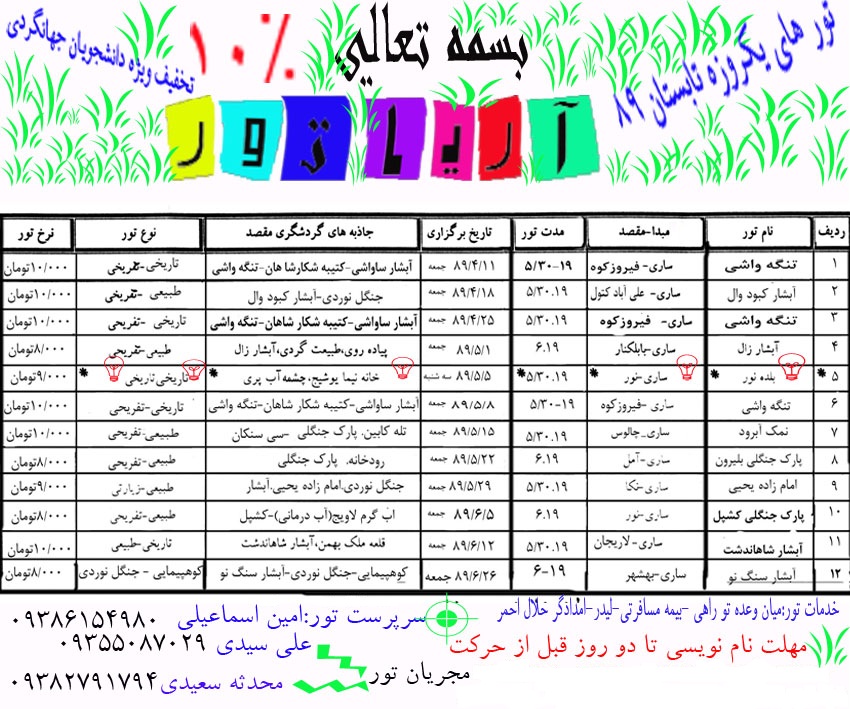 بسمه تعالي
تور های یکروزه تابستان ۸۹
۱۰٪
تخفیف ویژه دانشجویان جهانگردی
آریا تور
ردیف نام تور مبدا-مقصد مدت تور تاریخ برگزاری جاذبه های گردشگری مقصد نوع تور نرخ تور
۱ تنگه واشی ساری-فیروزکوه ۵/۳۰-۱۹ ۸۹/۴/۱۱ جمعه آبشار ساواشی-کتیبه شکارشاهان-تنگه واشی تاریخی-تفریخی ۱۰/۰۰۰تومان
۲ آبشار کبود وال ساری- علی آباد کتول ۵/۳۰.۱۹ ۸۹/۴/۱۸ جمعه جنگل نوردی-آبشار کبود وال طبیعی -تفریخی ۱۰/۰۰۰تومان
۳ تنگه واشی ساری- فیروزکوه ۵/۳۰.۱۹ ۸۹/۴/۲۵ جمعه آبشار ساواشی-کتیبه شکار شاهان-تنگه واشی تاریخی -تفریحی ۱۰/۰۰۰تومان
۴ آبشار زال ساری-بابلکنار ۶.۱۹ ۸۹/۵/۱ جمعه پیاده روی،طبیعت گردی،آبشار زال طبیعی-تفریحی ۸/۰۰۰تومان
* ۵ بلده نور * ساری-نور * ۵/۳۰.۱۹ * ۸۹/۵/۵ سه شنبه خانه نیما یوشیج،چشمه آب پری * تاریخی تاریخی * ۹/۰۰۰تومان
۶ تنگه واشی ساری -فیروزکوه ۵/۳۰-۱۹ ۸۹/۵/۸ جمعه آبشار ساواشی-کتیبه شکار شاهان-تنگه واشی تاریخی-تفریحی ۱۰/۰۰۰تومان
۷ نمک آبرود ساری-چالوس ۵/۳۰.۱۹ ۸۹/۵/۱۵ جمعه تله کابین، پارک جنگلی -سی سنکان طبیعی-تفریحی ۱۰/۰۰۰تومان
۸ پارک جنگلی بلیرون ساری-آمل ۶.۱۹ ۸۹/۵/۲۲ جمعه رودخانه، پارک جنگلی طبیعی-تفریحی ۸/۰۰۰تومان
۹ امام زاده یحیی ساری-نکا ۵/۳۰.۱۹ ۸۹/۵/۲۹ جمعه جنگل نوردی،امام زاده یحیی،آبشار طبیعی-زیارتی ۹/۰۰۰تومان
۱۰ پارک جنگلی کشپل ساری-نور ۶.۱۹ ۸۹/۶/۵ جمعه اب گرم لاویج(آب درمانی)-کشپل طبیعی-تفریحی ۸/۰۰۰تومان
۱۱ آبشار شاهاندشت ساری-لاریجان ۵/۳۰.۱۹ ۸۹/۶/۱۲ جمعه قلعه ملک بهمن،آبشار شاهاندشت تاریخی-طبیعی ۱۰/۰۰۰تومان
۱۲ آبشار سنگ نو ساری-بهشهر ۶-۱۹ ۸۹/۶/۲۶ جمعه کوهپیمایی-جنگل نوردی-آبشار سنگ نو کوهپیمایی - جنگل نوردی ۸/۰۰۰تومان
خدمات تور:میان وعده تو راهی -بیمه مسافرتی-لیدر-امدادگر خلال احمر
سرپرست تور:امین اسماعیلی ۰۹۳۸۶۱۵۴۹۸۰
مهلت نام نویسی تا دو روز قبل از حرکت
علی سیدی ۰۹۳۵۵۰۸۷۰۲۹
مجریان تور
محدثه سعیدی ۰۹۳۸۲۷۹۱۷۹۴